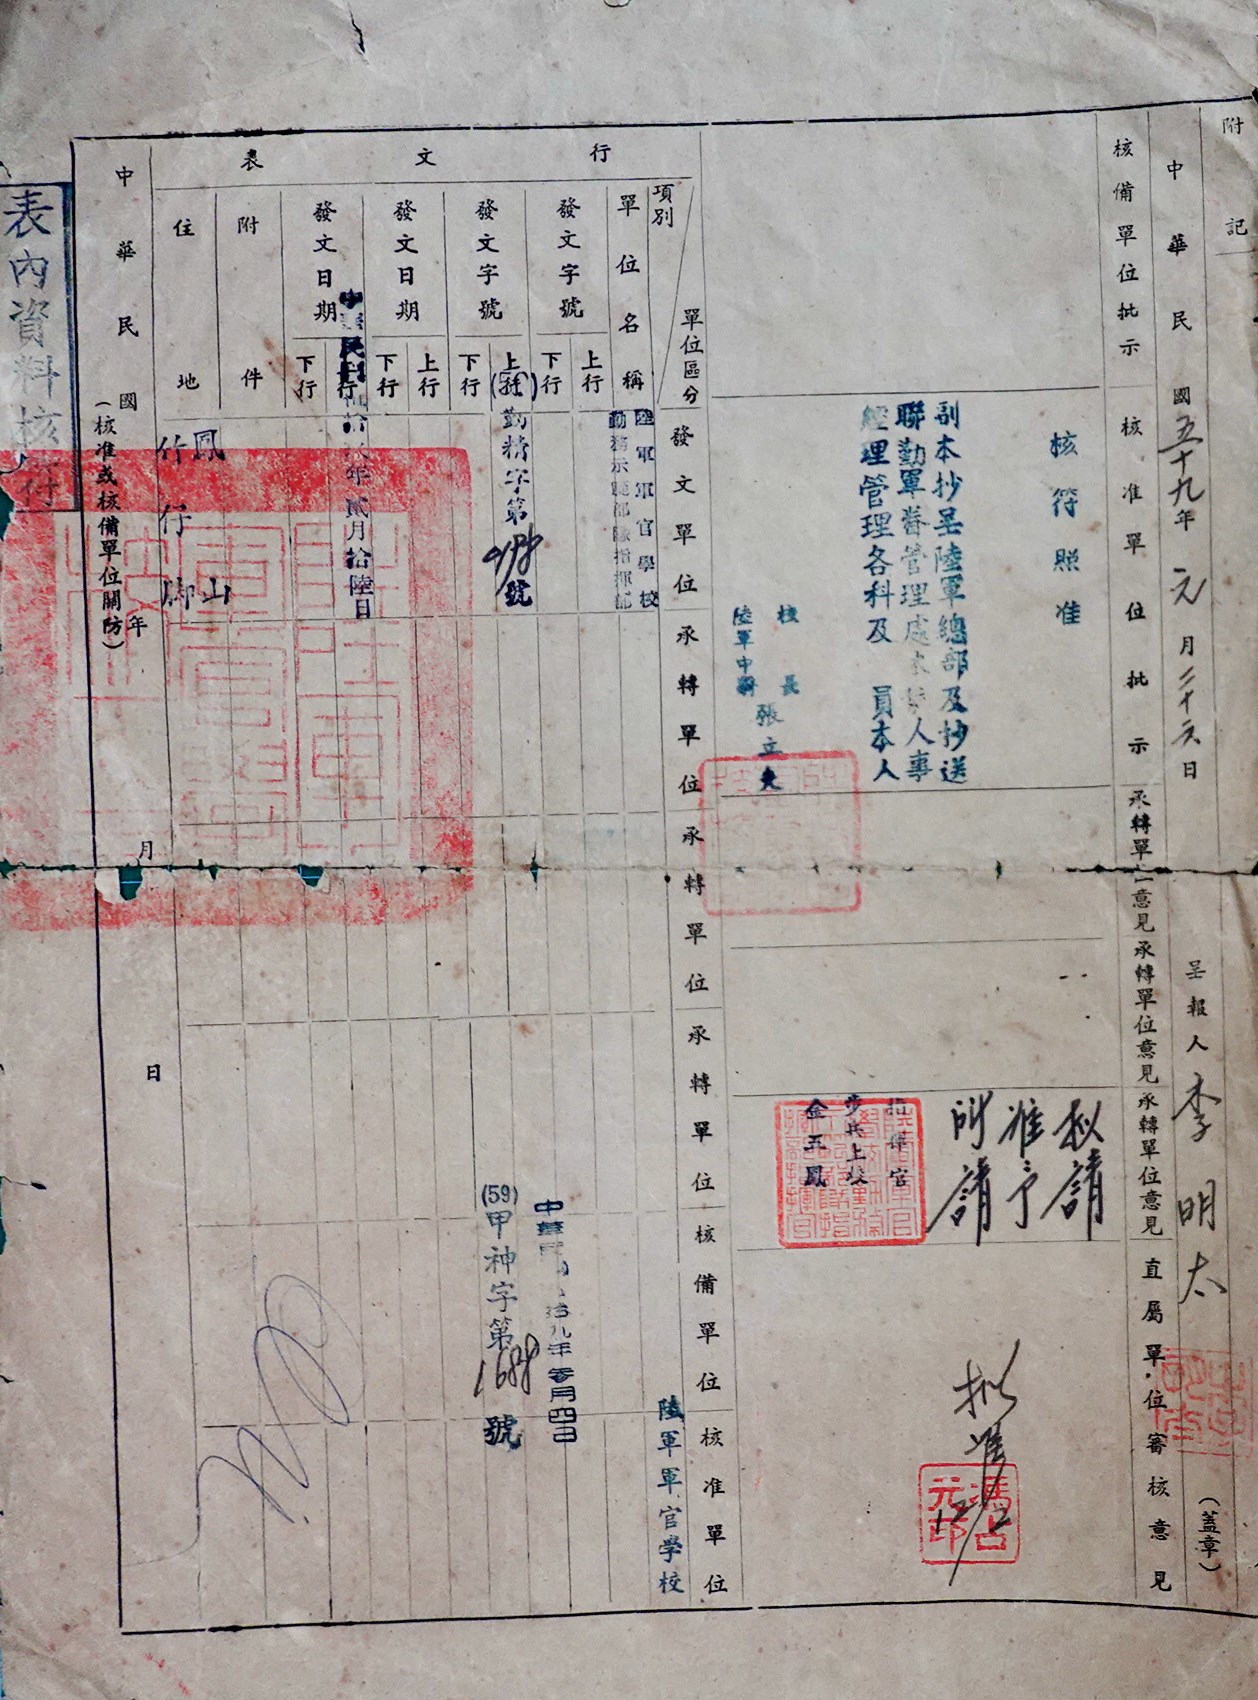 附記
中華民國五十九年元月二十六日
呈報人 李明太 (蓋章)
核備單位批示
核准單位批示
承轉單位意見
承轉單位意見
承轉單位意見
直屬單位審核意見
核符照准
副本抄呈陸軍總部及抄送
聯勤軍眷管理處本校人事
經理管理各科及 員本人
校長
陸軍中將
張立夫
擬請
准予
所請
指揮官
步兵上校
金五鳳
擬准
馮占元印
行文表
項別
單位區分
發文單位
承轉單位
承轉單位
承轉單位
核備單位
核准單位
單位名稱
陸軍軍官學校
勤務示範部隊指揮部
陸軍軍官學校
發文字號
上行
下行
中華民國伍拾九年零月四日
發文字號
上行
下行
勤精字第
號
(59)甲神字第1688號
發文日期
上行
下行
發文日期
下行
年貳月拾陸日
附件
住地
鳳山
竹仔腳
中華民國 年 月 日
(核准或核備單位關防)
表內資料核符